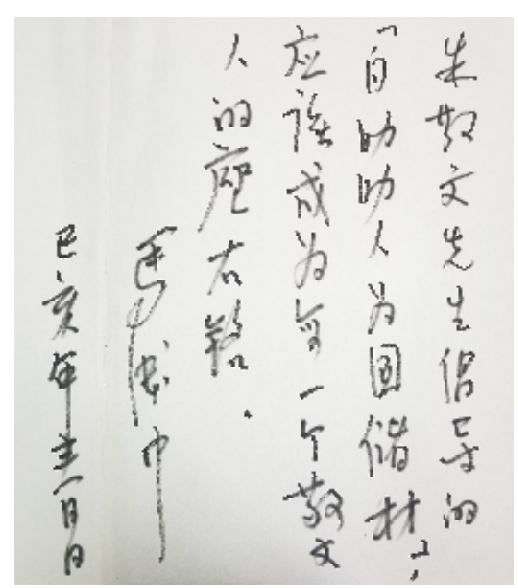 朱敬文先生倡导的
「自助助人为国储材」
应该成为每一个敬文
人的座右铭.
中
己亥年